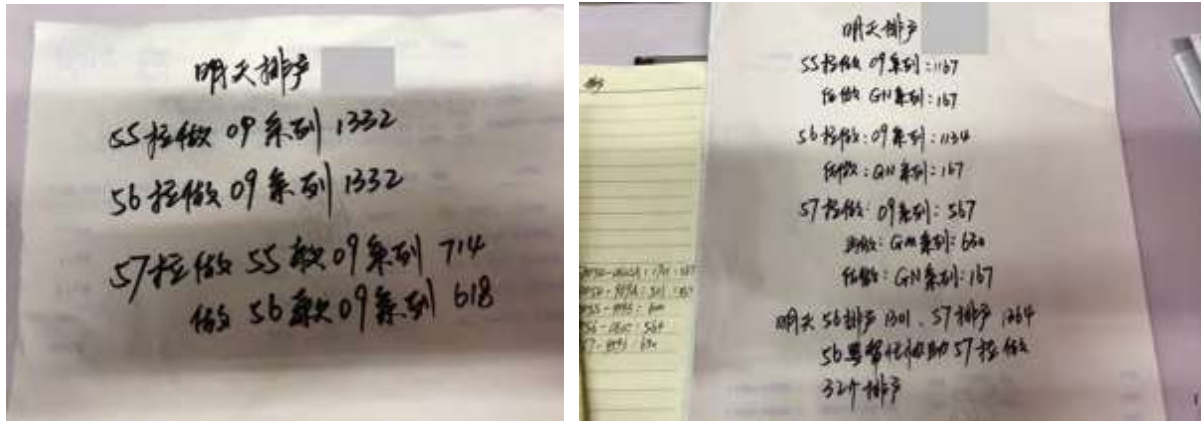 明天排产
55拉做 09系列 1332
56拉做 09系列 1332
57拉做 55款 09系列 714
做 56款 09系列 618
明天排产
55拉做 09系列:1167
做 GN系列:167
56拉做:09系列:1134
做:GN系列:167
57拉做:09系列:567
做:GM系列:630
做:GN系列:167
明天 56排产 1301、57排产 1364
56 协助57拉做
32个排产